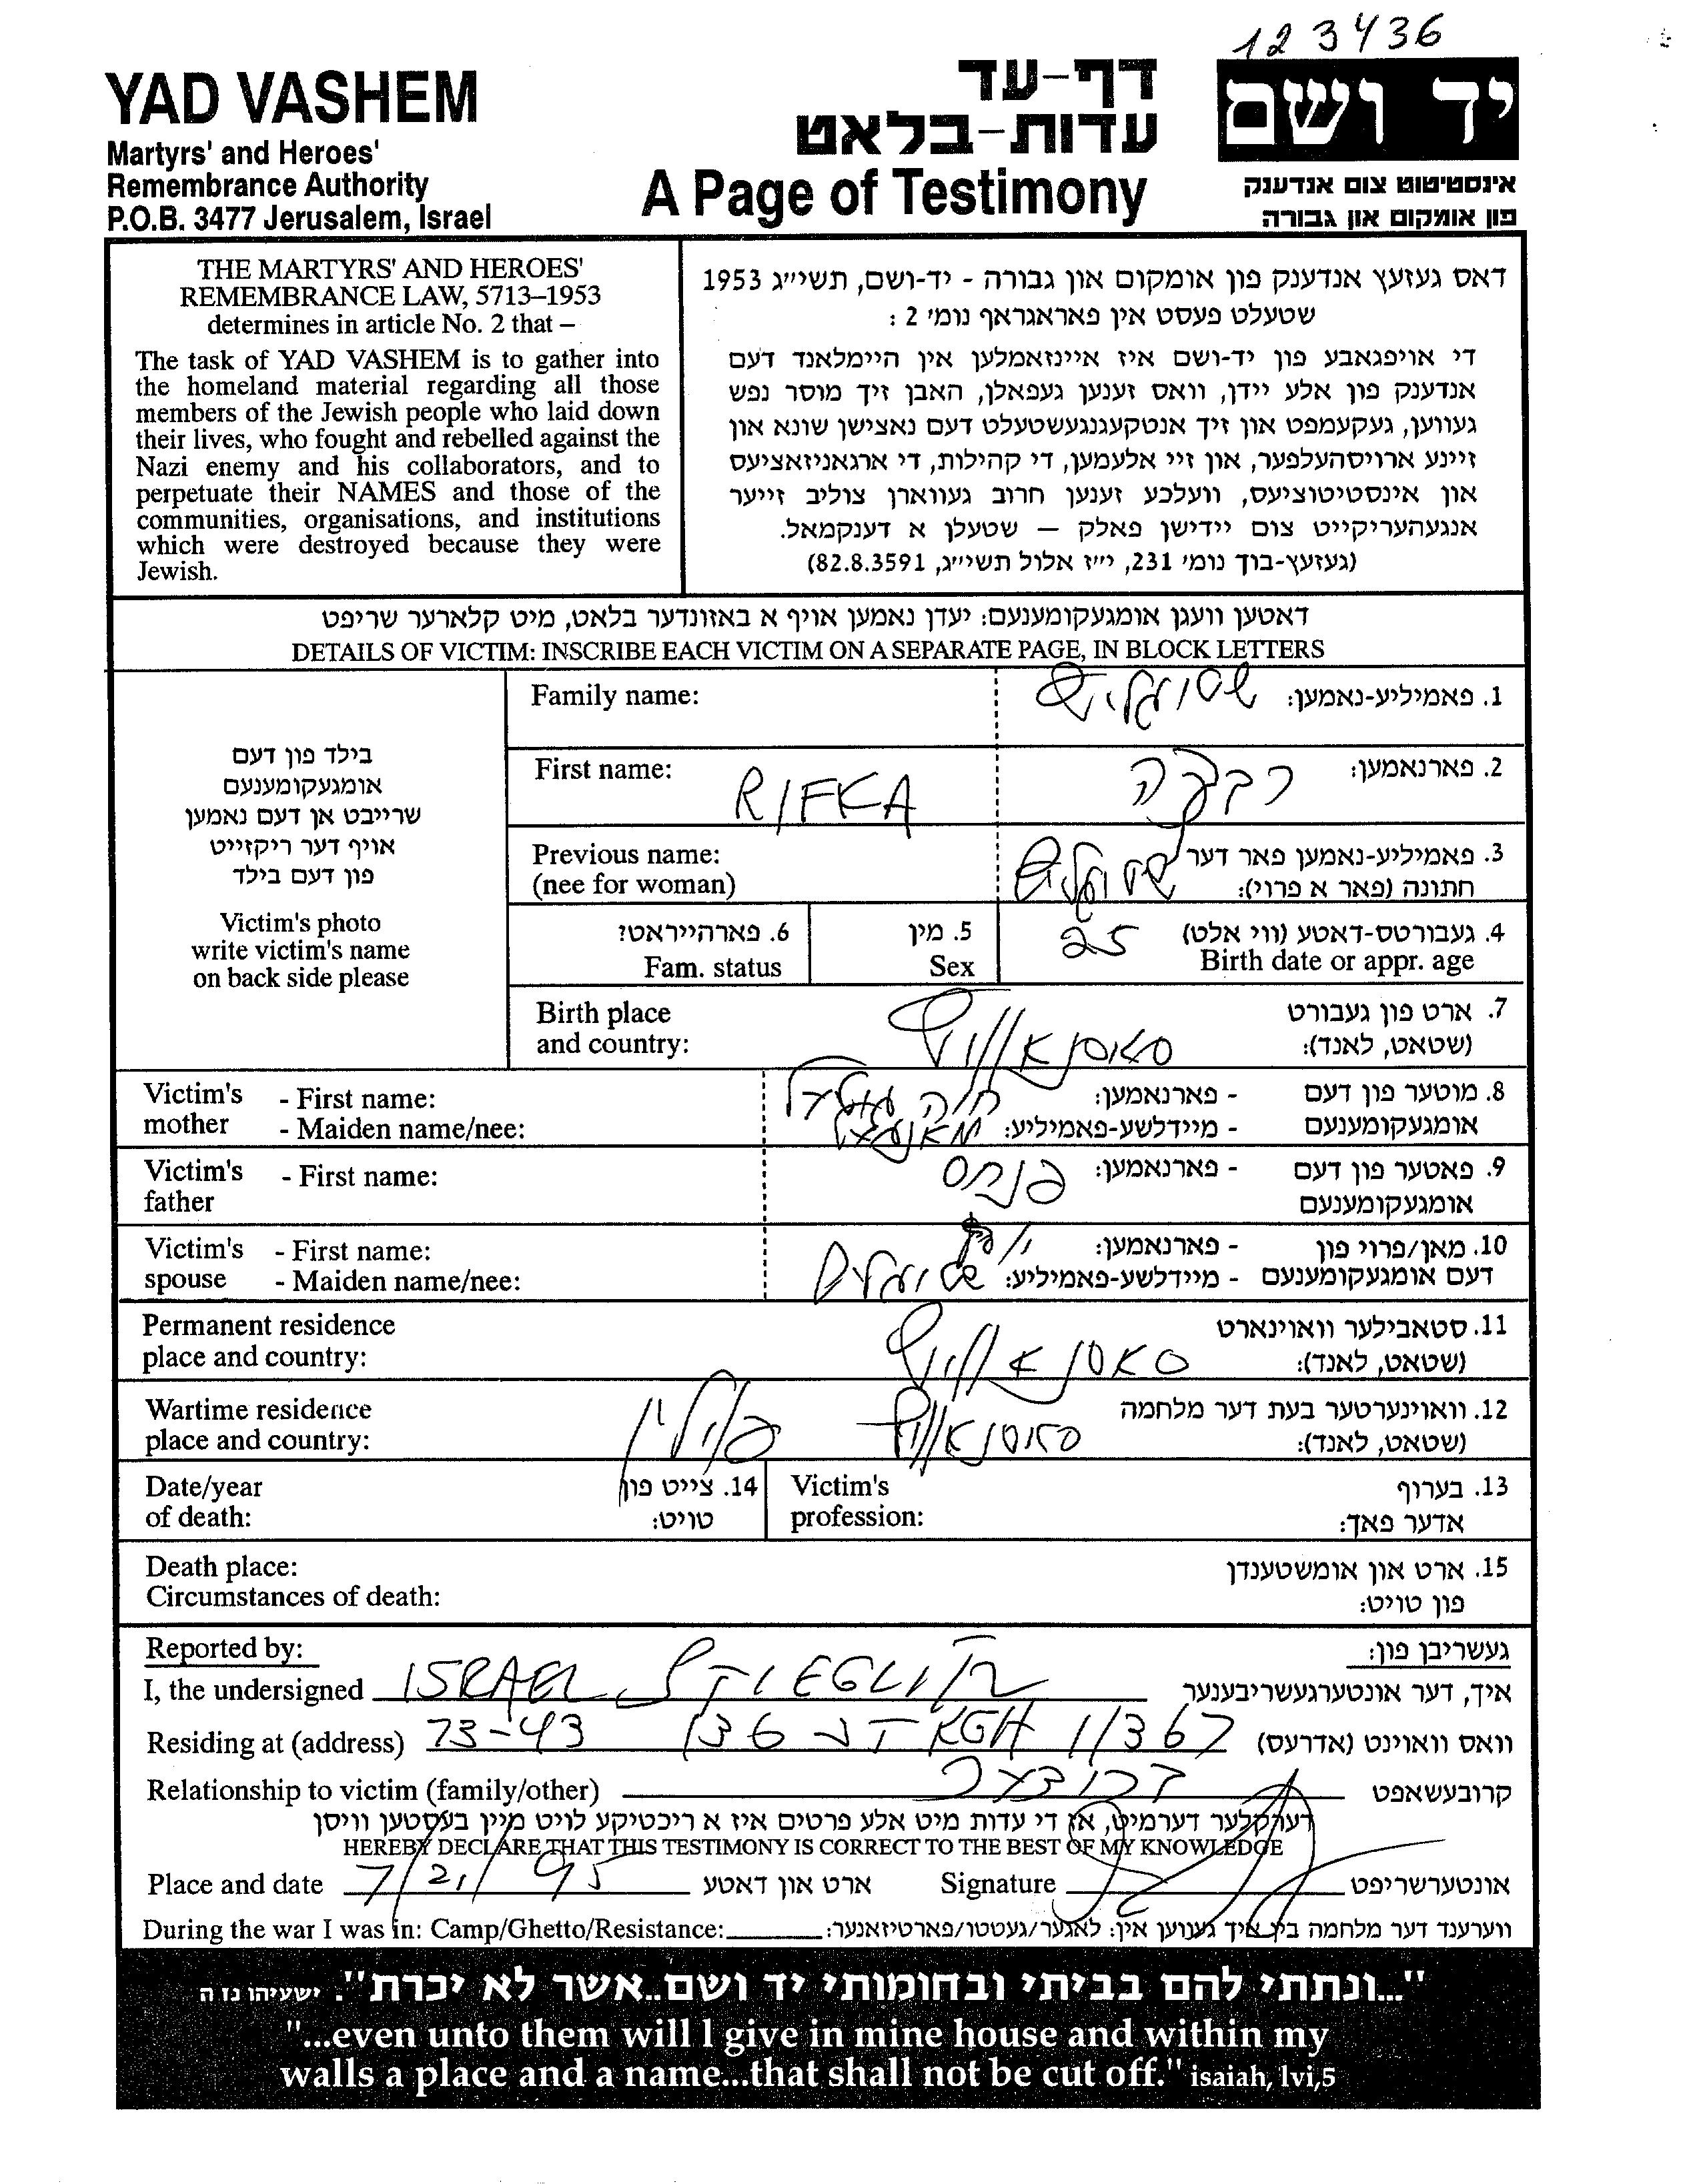 123436
YAD VASHEM
Martyrs' and Heroes'
Remembrance Authority
P.O.B. 3477 Jerusalem, Israel
דף-עד
עדות-בלאט
A Page of Testimony
יד ושם
אינסטיטוט צום אנדענק
פון אומקום און גבורה
THE MARTYRS' AND HEROES'
REMEMBRANCE LAW, 5713–1953
determines in article No. 2 that –
The task of YAD VASHEM is to gather into
the homeland material regarding all those
members of the Jewish people who laid down
their lives, who fought and rebelled against the
Nazi enemy and his collaborators, and to
perpetuate their NAMES and those of the
communities, organisations, and institutions
which were destroyed because they were
Jewish.
דאס געזעץ אנדענק פון אומקום און גבורה - יד-ושם, תשי״ג 1953
שטעלט פעסט אין פאראגראף נומ׳ 2 :
די אויפגאבע פון יד-ושם איז איינזאמלען אין היימלאנד דעם
אנדענק פון אלע יידן, וואס זענען געפאלן, האבן זיך מוסר נפש
געווען, געקעמפט און זיך אנטקעגנגעשטעלט דעם נאצישן שונא און
זיינע ארויסהעלפער, און זיי אלעמען, די קהילות, די ארגאניזאציעס
און אינסטיטוציעס, וועלכע זענען חרוב געווארן צוליב זייער
אנגעהעריקייט צום יידישן פאלק — שטעלן א דענקמאל.
(געזעץ-בוך נומ׳ 231, י״ז אלול תשי״ג, 82.8.3591)
דאטען וועגן אומגעקומענעם: יעדן נאמען אויף א באזונדער בלאט, מיט קלארער שריפט
DETAILS OF VICTIM: INSCRIBE EACH VICTIM ON A SEPARATE PAGE, IN BLOCK LETTERS
בילד פון דעם
אומגעקומענעם
שרייבט אן דעם נאמען
אויף דער ריקזייט
פון דעם בילד
Victim's photo
write victim's name
on back side please
Family name: 1. פאמיליע-נאמען:
First name: RIFKA 2. פארנאמען: רבקה
Previous name: 3. פאמיליע-נאמען פאר דער
(nee for woman) חתונה (פאר א פרוי):
6. פארהייראט? 5. מין 25 4. געבורטס-דאטע (ווי אלט)
Fam. status Sex Birth date or appr. age
Birth place 7. ארט פון געבורט
and country: (שטאט, לאנד): סאסנאוויץ
Victim's - First name: 8. מוטער פון דעם - פארנאמען: חיה
mother - Maiden name/nee: אומגעקומענעם - מיידלשע-פאמיליע:
Victim's - First name: 9. פאטער פון דעם - פארנאמען: פנחס
father אומגעקומענעם
Victim's - First name: 10. מאן/פרוי פון - פארנאמען:
spouse - Maiden name/nee: דעם אומגעקומענעם - מיידלשע-פאמיליע:
Permanent residence 11. סטאבילער וואוינארט
place and country: (שטאט, לאנד): סאסנאוויץ
Wartime residence 12. וואוינערטער בעת דער מלחמה
place and country: (שטאט, לאנד): סאסנאוויץ פוילין
Date/year 14. צייט פון Victim's 13. בערוף
of death: טויט: profession: אדער פאך:
Death place: 15. ארט און אומשטענדן
Circumstances of death: פון טויט:
Reported by: געשריבן פון:
I, the undersigned ISRAEL STIEGLITZ איך, דער אונטערגעשריבענער
Residing at (address) 73-43 136 ST KGH 11367 וואס וואוינט (אדרעס)
Relationship to victim (family/other) קרובעשאפט
דערקלער דערמיט, אז די עדות מיט אלע פרטים איז א ריכטיקע לויט מיין בעסטען וויסן
HEREBY DECLARE THAT THIS TESTIMONY IS CORRECT TO THE BEST OF MY KNOWLEDGE
Place and date 7/21/95 ארט און דאטע Signature אונטערשריפט
During the war I was in: Camp/Ghetto/Resistance: ווערענד דער מלחמה בין איך געווען אין: לאגער/געטטו/פארטיזאנער:
"...ונתתי להם בביתי ובחומותי יד ושם..אשר לא יכרת". ישעיהו נז ה
"...even unto them will I give in mine house and within my
walls a place and a name...that shall not be cut off." isaiah, lvi,5